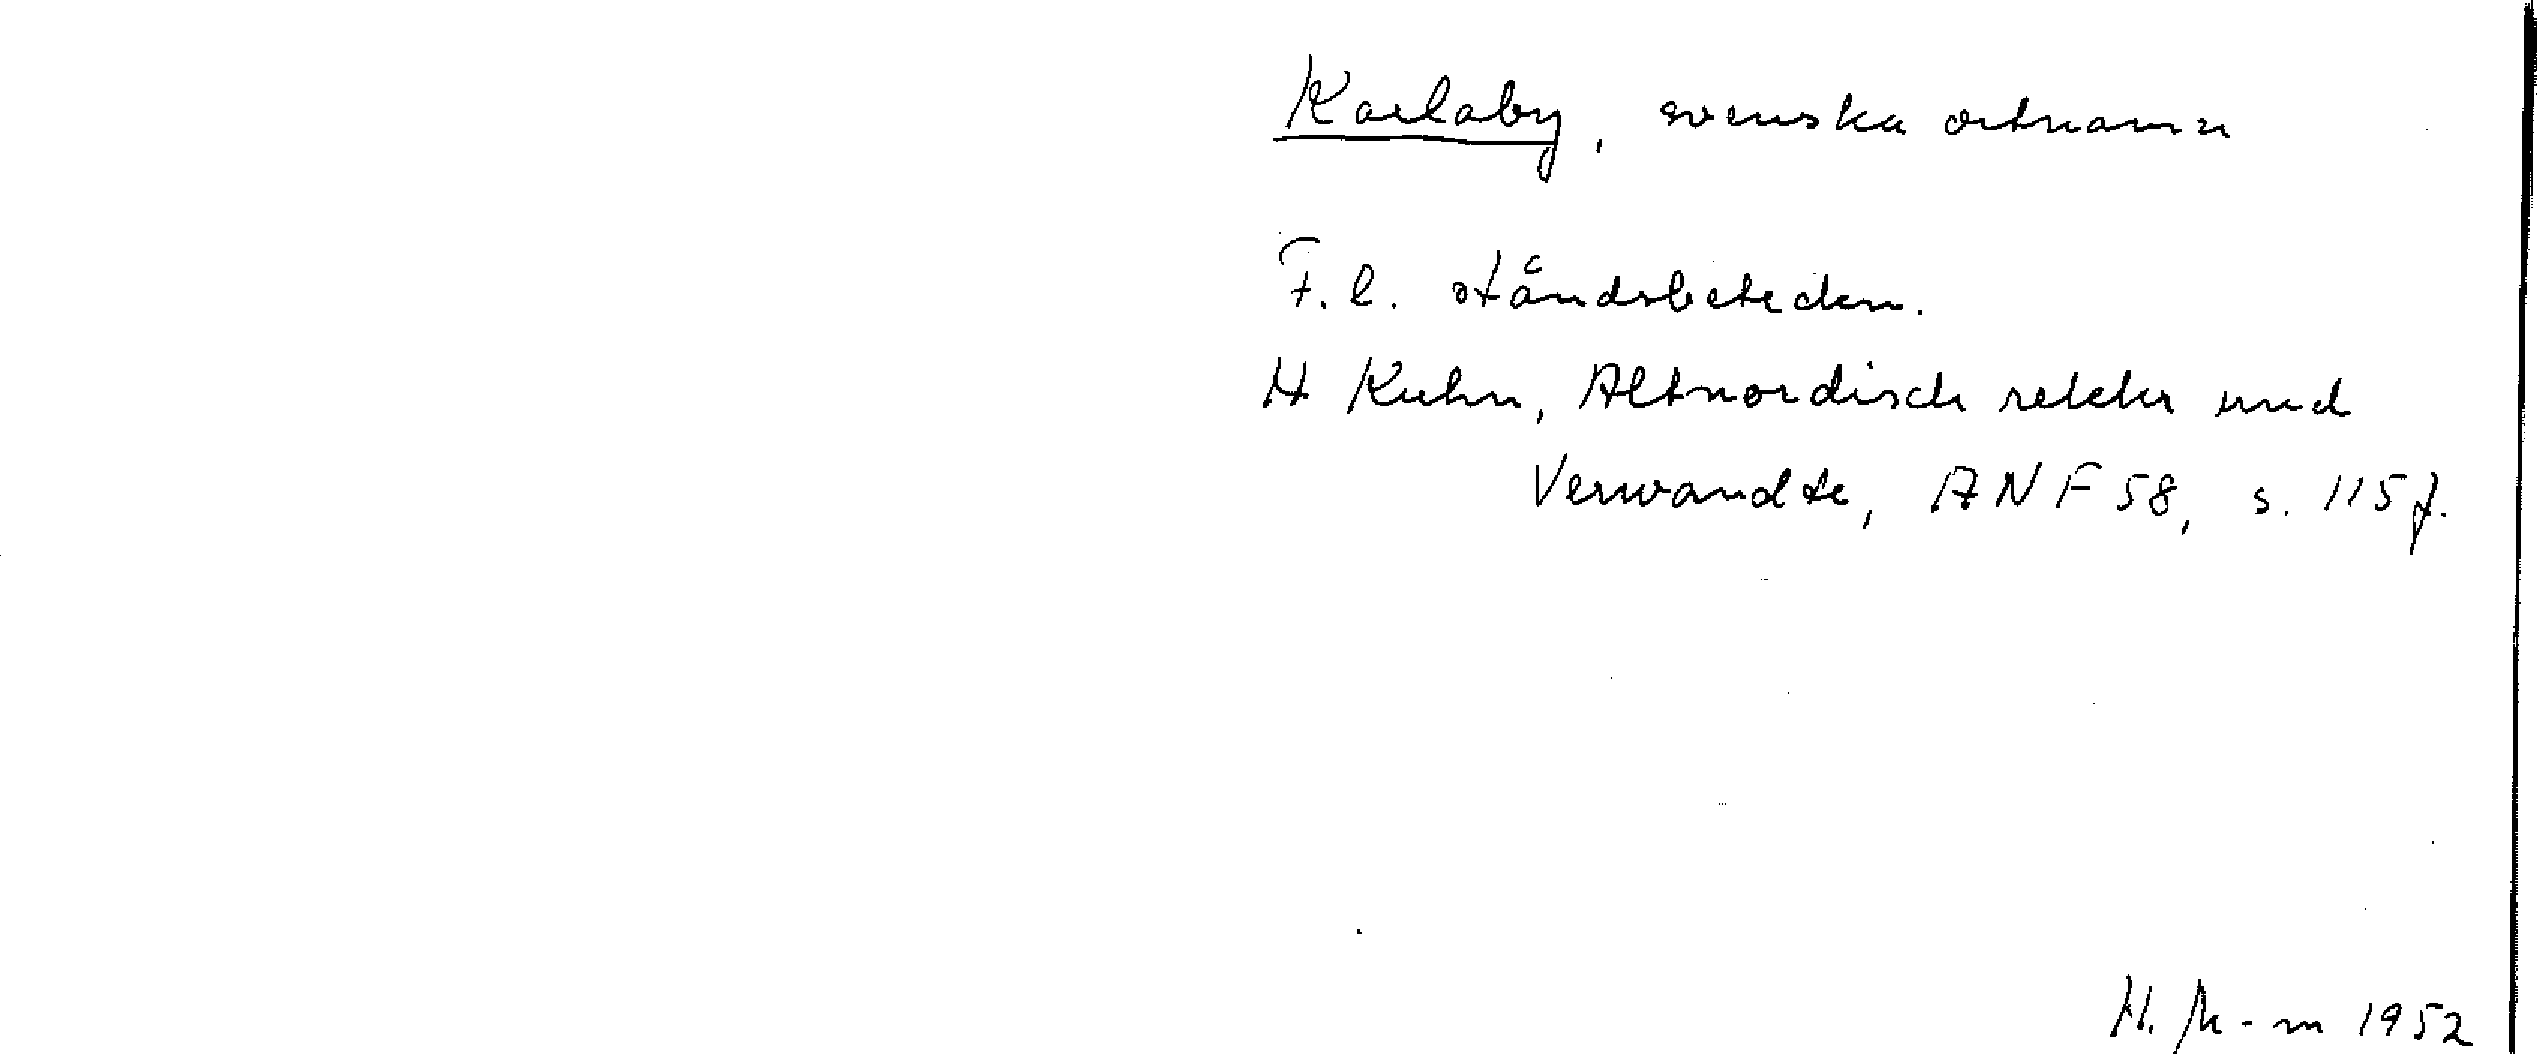 Karlaby, svenska ortnamn
F.l. ståndsbeteckn.
H Kuhn, Altnordisch rekkr und
Verwandte, ANF 58, s. 115 f.
1952